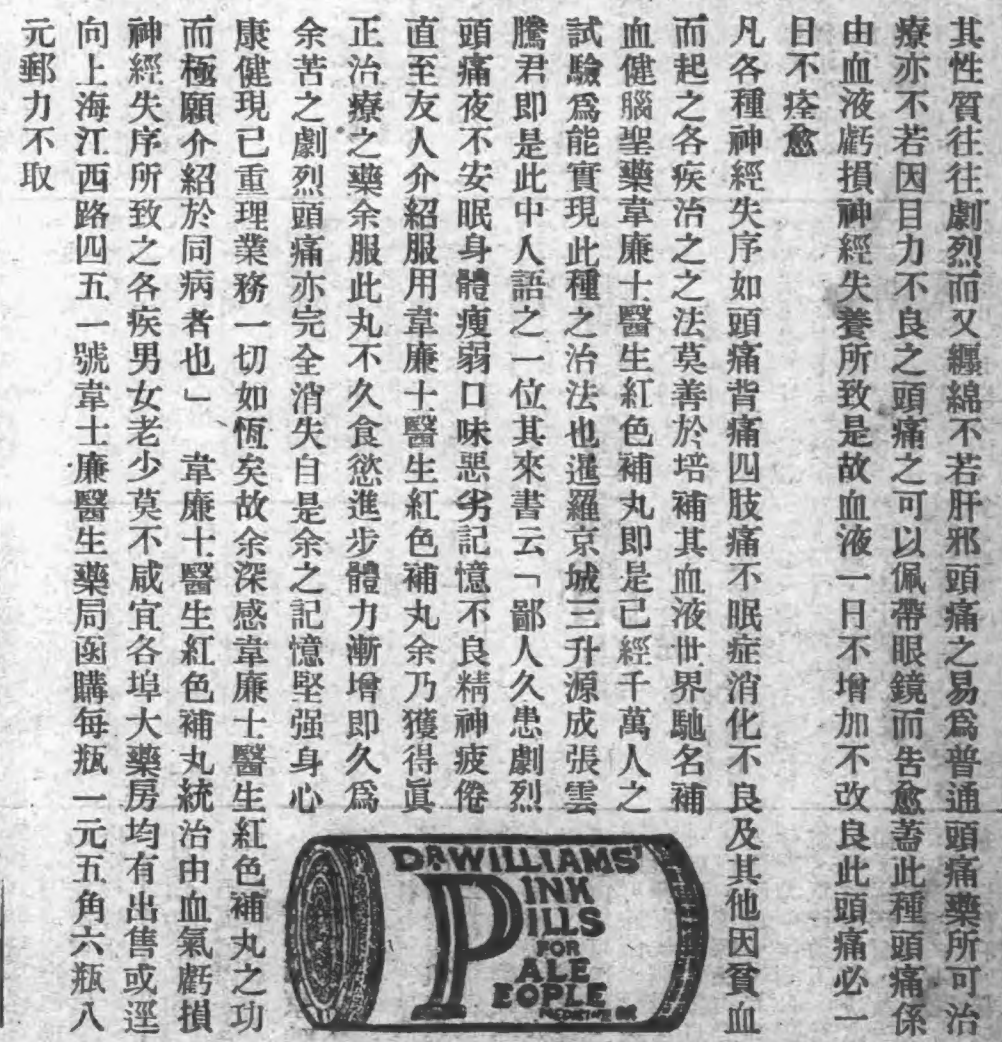 其性質往往劇烈而又纏綿不若肝邪頭痛之易爲普通頭痛藥所可治
療亦不若因目力不良之頭痛之可以佩帶眼鏡而告愈蓋此種頭痛係
由血液虧損神經失養所致是故血液一日不增加不改良此頭痛必一
日不痊愈
凡各種神經失序如頭痛背痛四肢痛不眠症消化不良及其他因貧血
而起之各疾治之之法莫善於培補其血液世界馳名補
血健腦聖藥韋廉士醫生紅色補丸即是已經千萬人之
試驗爲能實現此種之治法也暹羅京城三升源成張雲
騰君即是此中人語之一位其來書云「鄙人久患劇烈
頭痛夜不安眠身體瘦弱口味惡劣記憶不良精神疲倦
直至友人介紹服用韋廉士醫生紅色補丸余乃獲得眞
正治療之藥余服此丸不久食慾進步體力漸增即久爲
余苦之劇烈頭痛亦完全消失自是余之記憶堅强身心
康健現已重理業務一切如恆矣故余深感韋廉士醫生紅色補丸之功
而極願介紹於同病者也」 韋廉士醫生紅色補丸統治由血氣虧損
神經失序所致之各疾男女老少莫不咸宜各埠大藥房均有出售或逕
向上海江西路四五一號韋士廉醫生藥局函購每瓶一元五角六瓶八
元郵力不取
DR WILLIAMS'
PINK
PILLS
FOR
PALE
PEOPLE